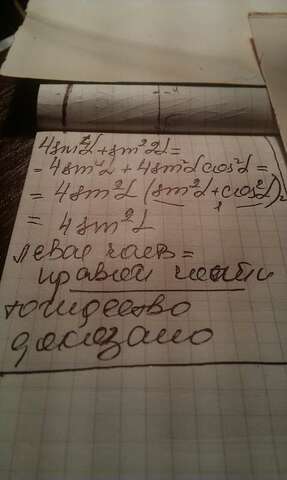 4sin⁴α + sin²2α =
= 4sin⁴α + 4sin²α cos²α =
= 4sin²α (sin²α + cos²α) =
1
= 4sin²α
левая часть =
правой части
тождество
доказано